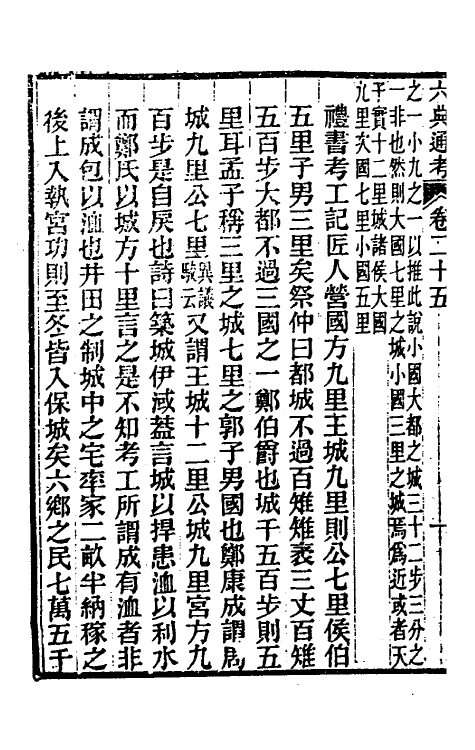 六典通考 卷二十五 十
之一小九之一以推此說小國大都之城三十二步三分之
一非也然則大國七里之城小國三里之城焉爲近或者天
子實十二里城諸侯大國
九里次國七里小國五里
禮書考工記匠人營國方九里王城九里則公七里侯伯
五里子男三里矣祭仲曰都城不過百雉雉袤三丈百雉
五百步大都不過三國之一鄭伯爵也城千五百步則五
里耳孟子稱三里之城七里之郭子男國也鄭康成謂周
城九里公七里異議駁云又謂王城十二里公城九里宮方九
百步是自戾也詩曰築城伊淢蓋言城以捍患洫以利水
而鄭氏以城方十里言之是不知考工所謂成有洫者非
謂成包以洫也井田之制城中之宅率家二畝半納稼之
後上入執宮功則至冬皆入保城矣六鄉之民七萬五千